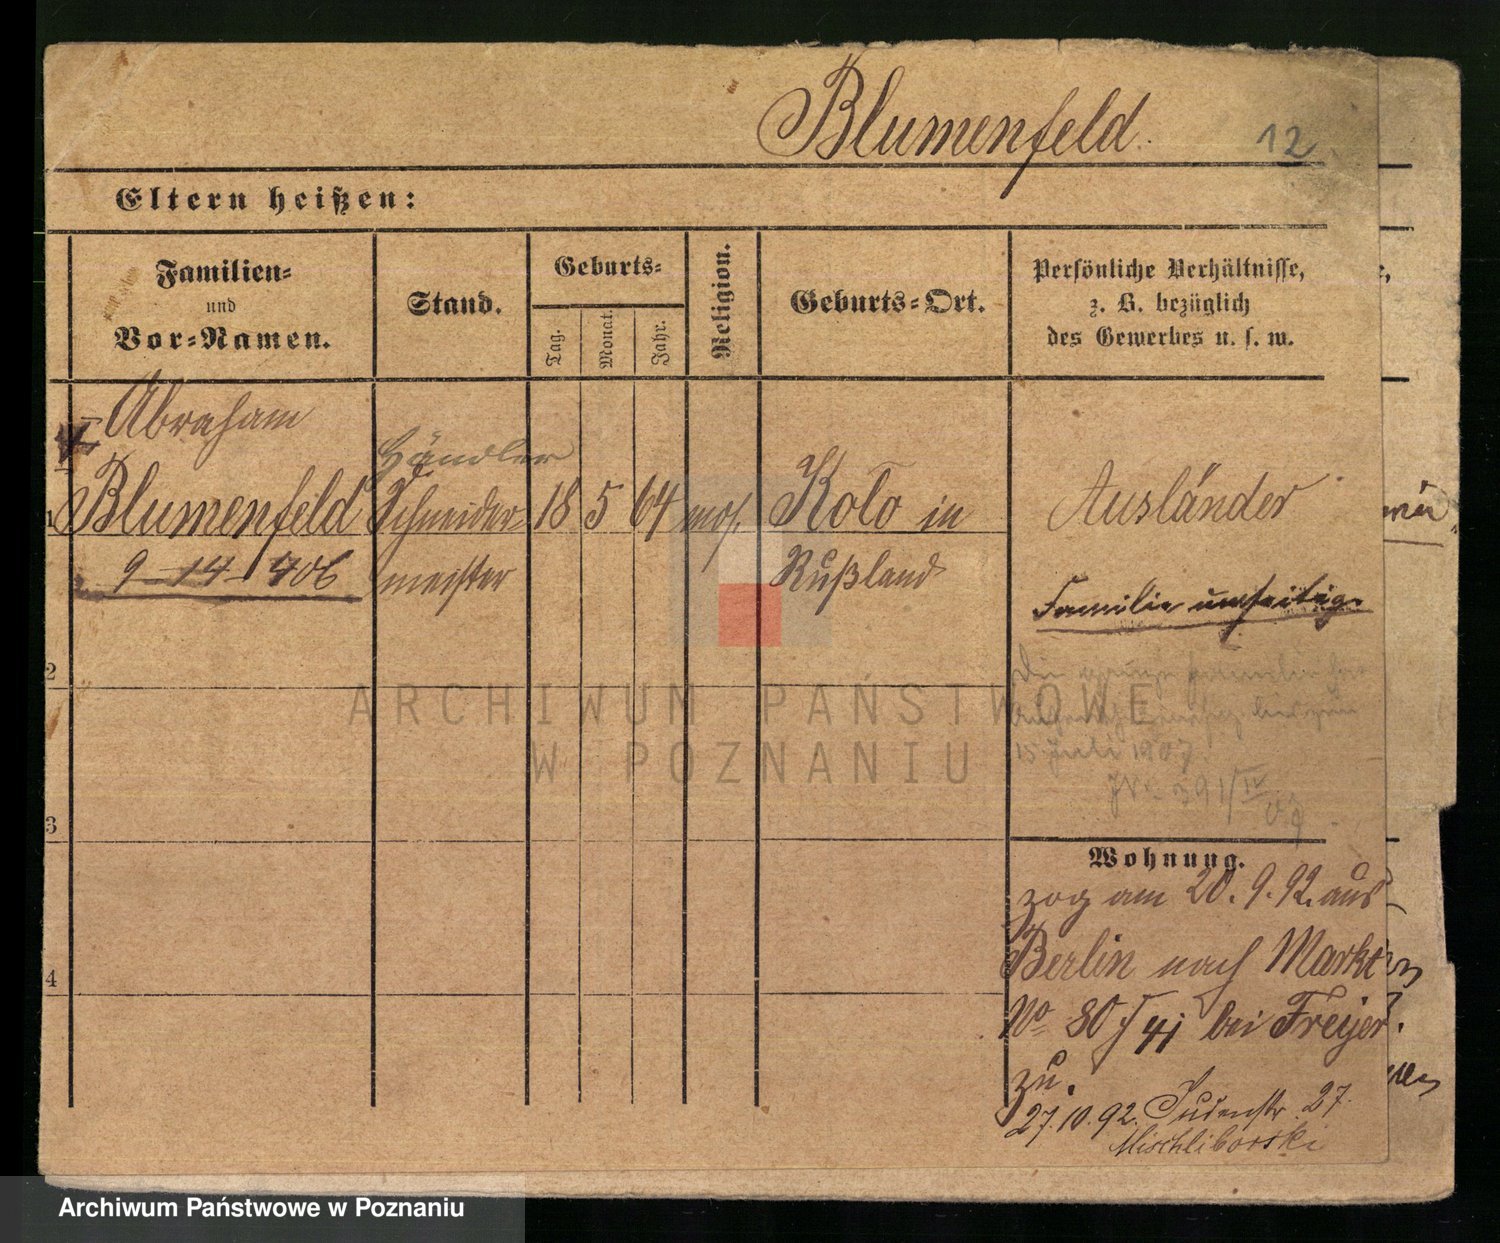 Blumenfeld. 12
Eltern heißen:
Familien-
und
Vor-Namen.
Stand.
Geburts-
Tag.
Monat.
Jahr.
Religion.
Geburts-Ort.
Persönliche Verhältnisse,
z. B. bezüglich
des Gewerbes u. s. w.
Abraham
Händler
1 Blumenfeld Schneider- 18 5 64 mos. Kolo in
meister Rußland
Ausländer
Familie umseitig.
2
15 Juli 1907
3
4
Wohnung.
zog am 20. 9. 92. aus
Berlin nach Markt
No 80/41 bei Freyer
zu.
27.10.92. Judenstr. 27.
Mischliborski
ARCHIWUM PAŃSTWOWE
W POZNANIU
Archiwum Państwowe w Poznaniu